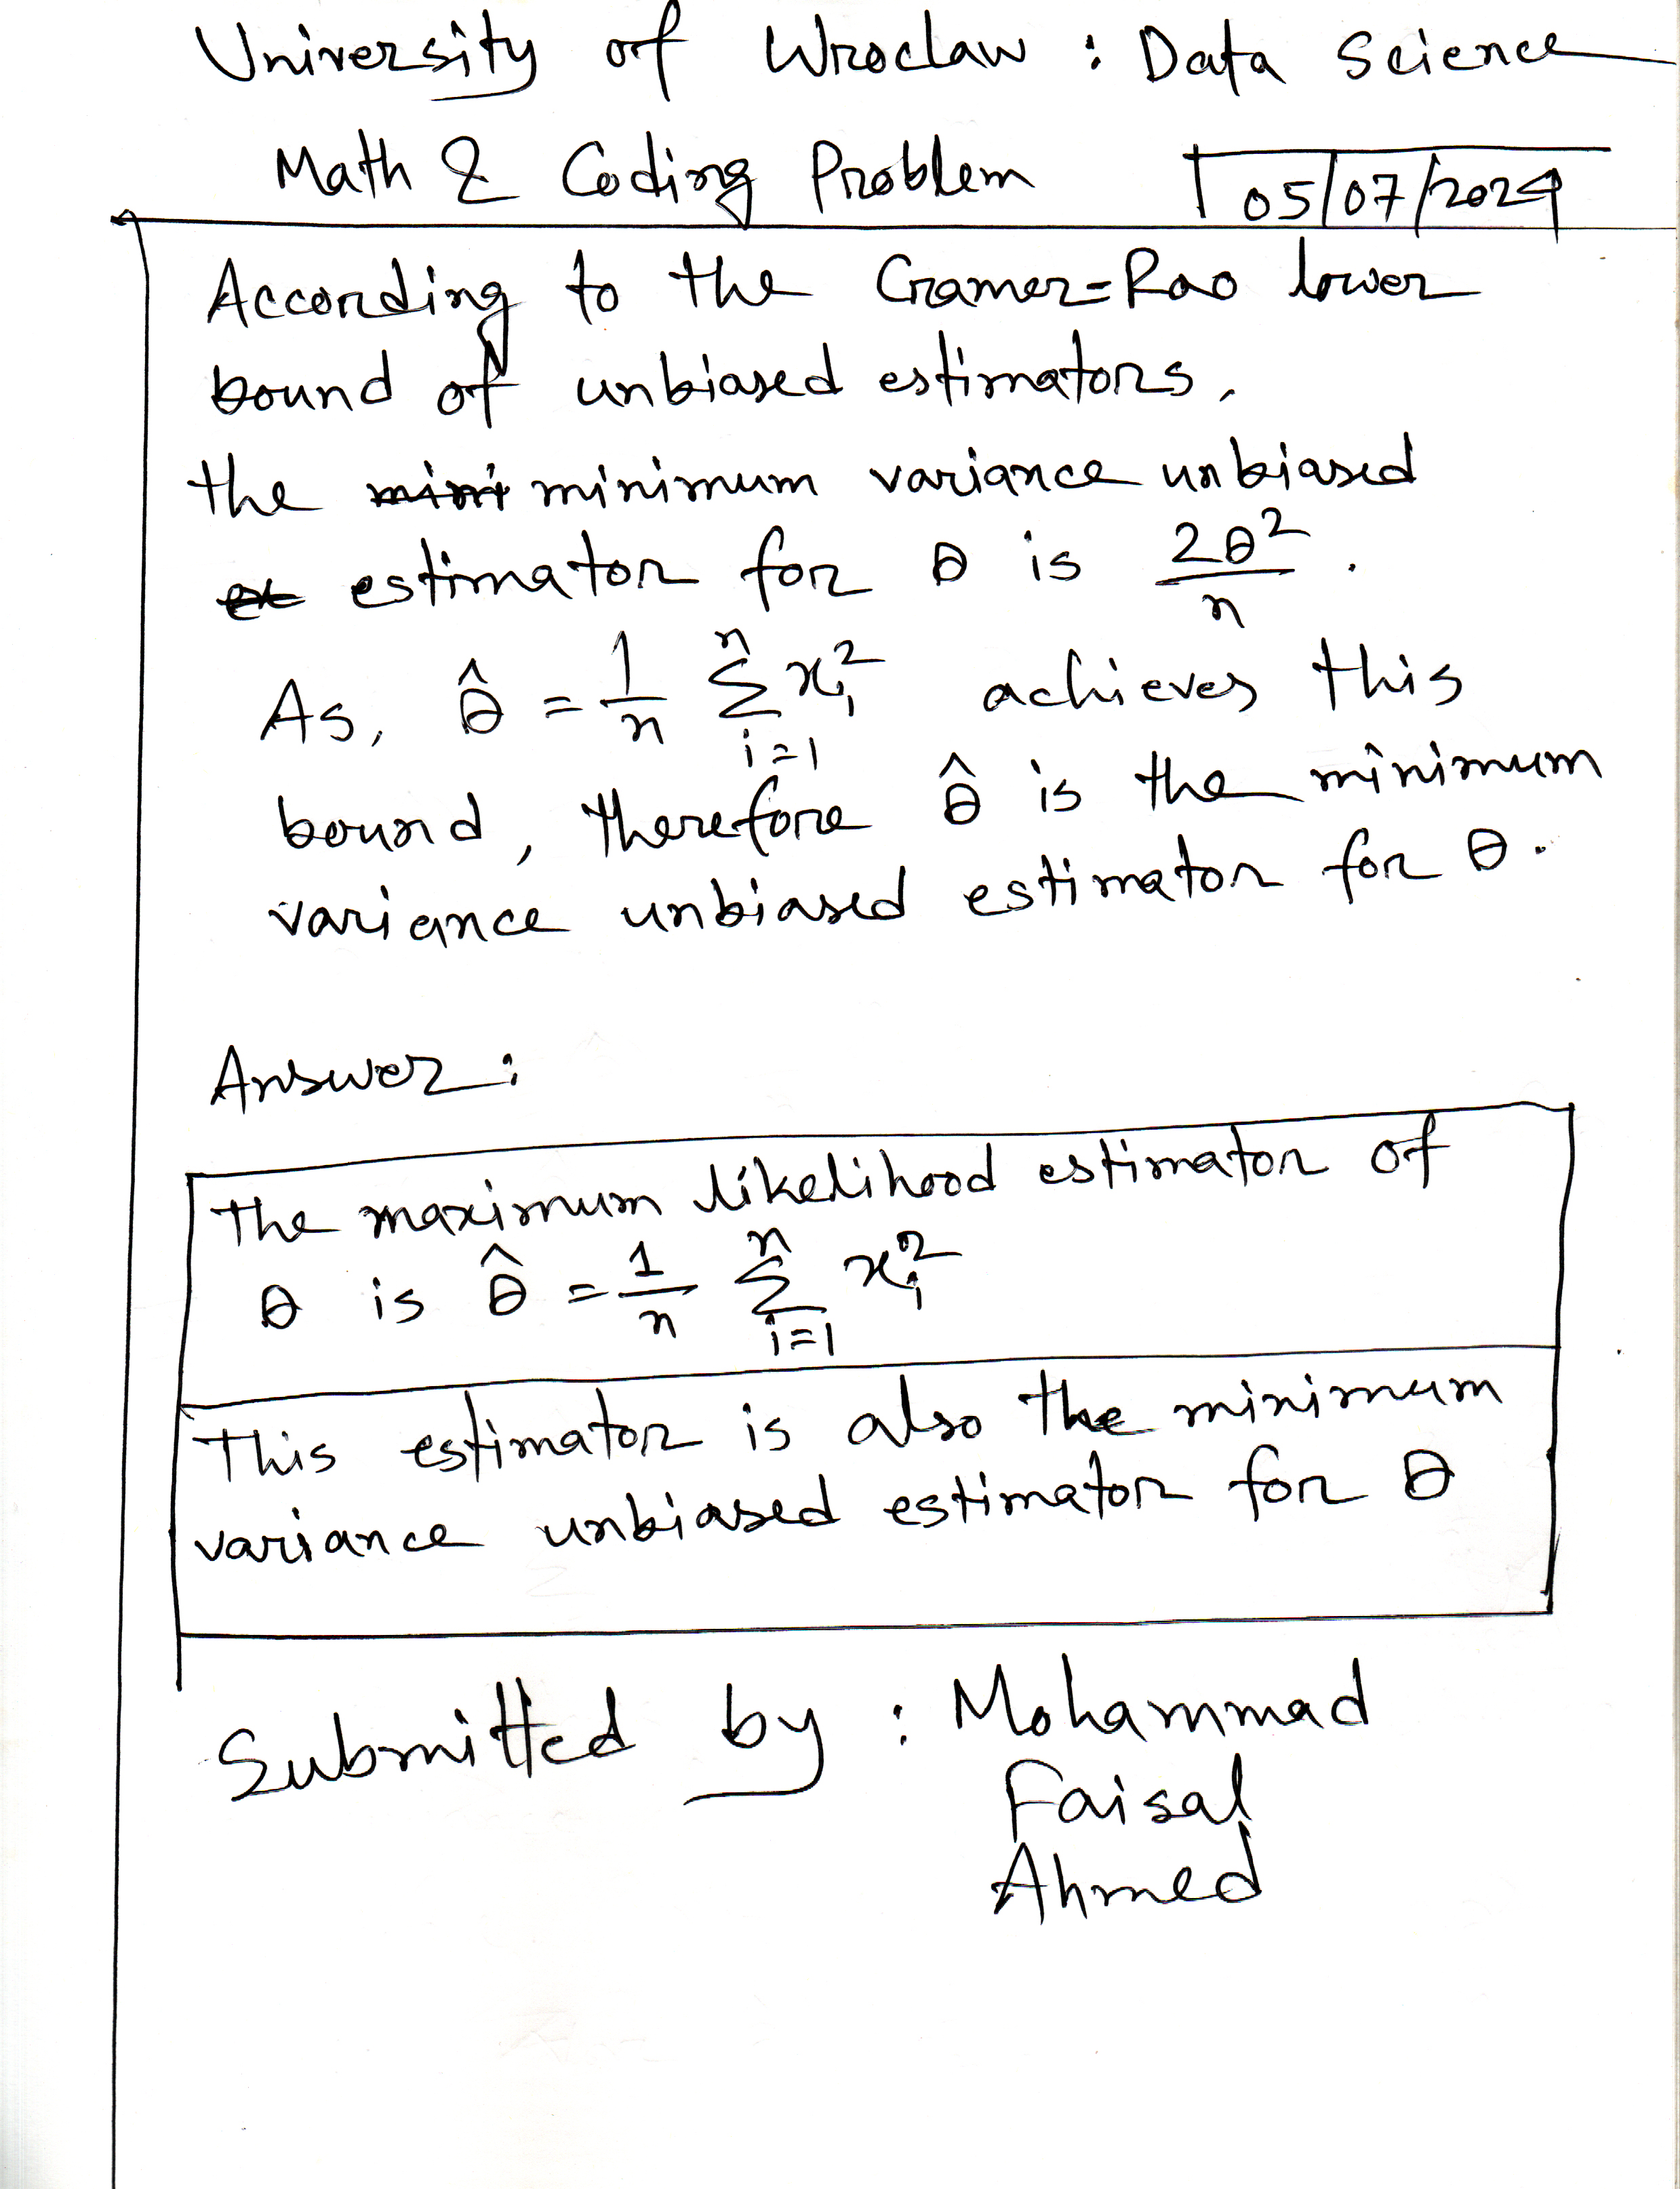 University of Wroclaw : Data Science
Math & Coding Problem 05/07/2024
According to the Cramer-Rao lower
bound of unbiased estimators,
the mini minimum variance unbiased
estimator for θ is 2θ²/n.
As, θ̂ = 1/n Σ_{i=1}^{n} x_i² achieves this
bound, therefore θ̂ is the minimum
variance unbiased estimator for θ.
Answer:
The maximum likelihood estimator of
θ is θ̂ = 1/n Σ_{i=1}^{n} x_i²
This estimator is also the minimum
variance unbiased estimator for θ
Submitted by : Mohammad
Faisal
Ahmed